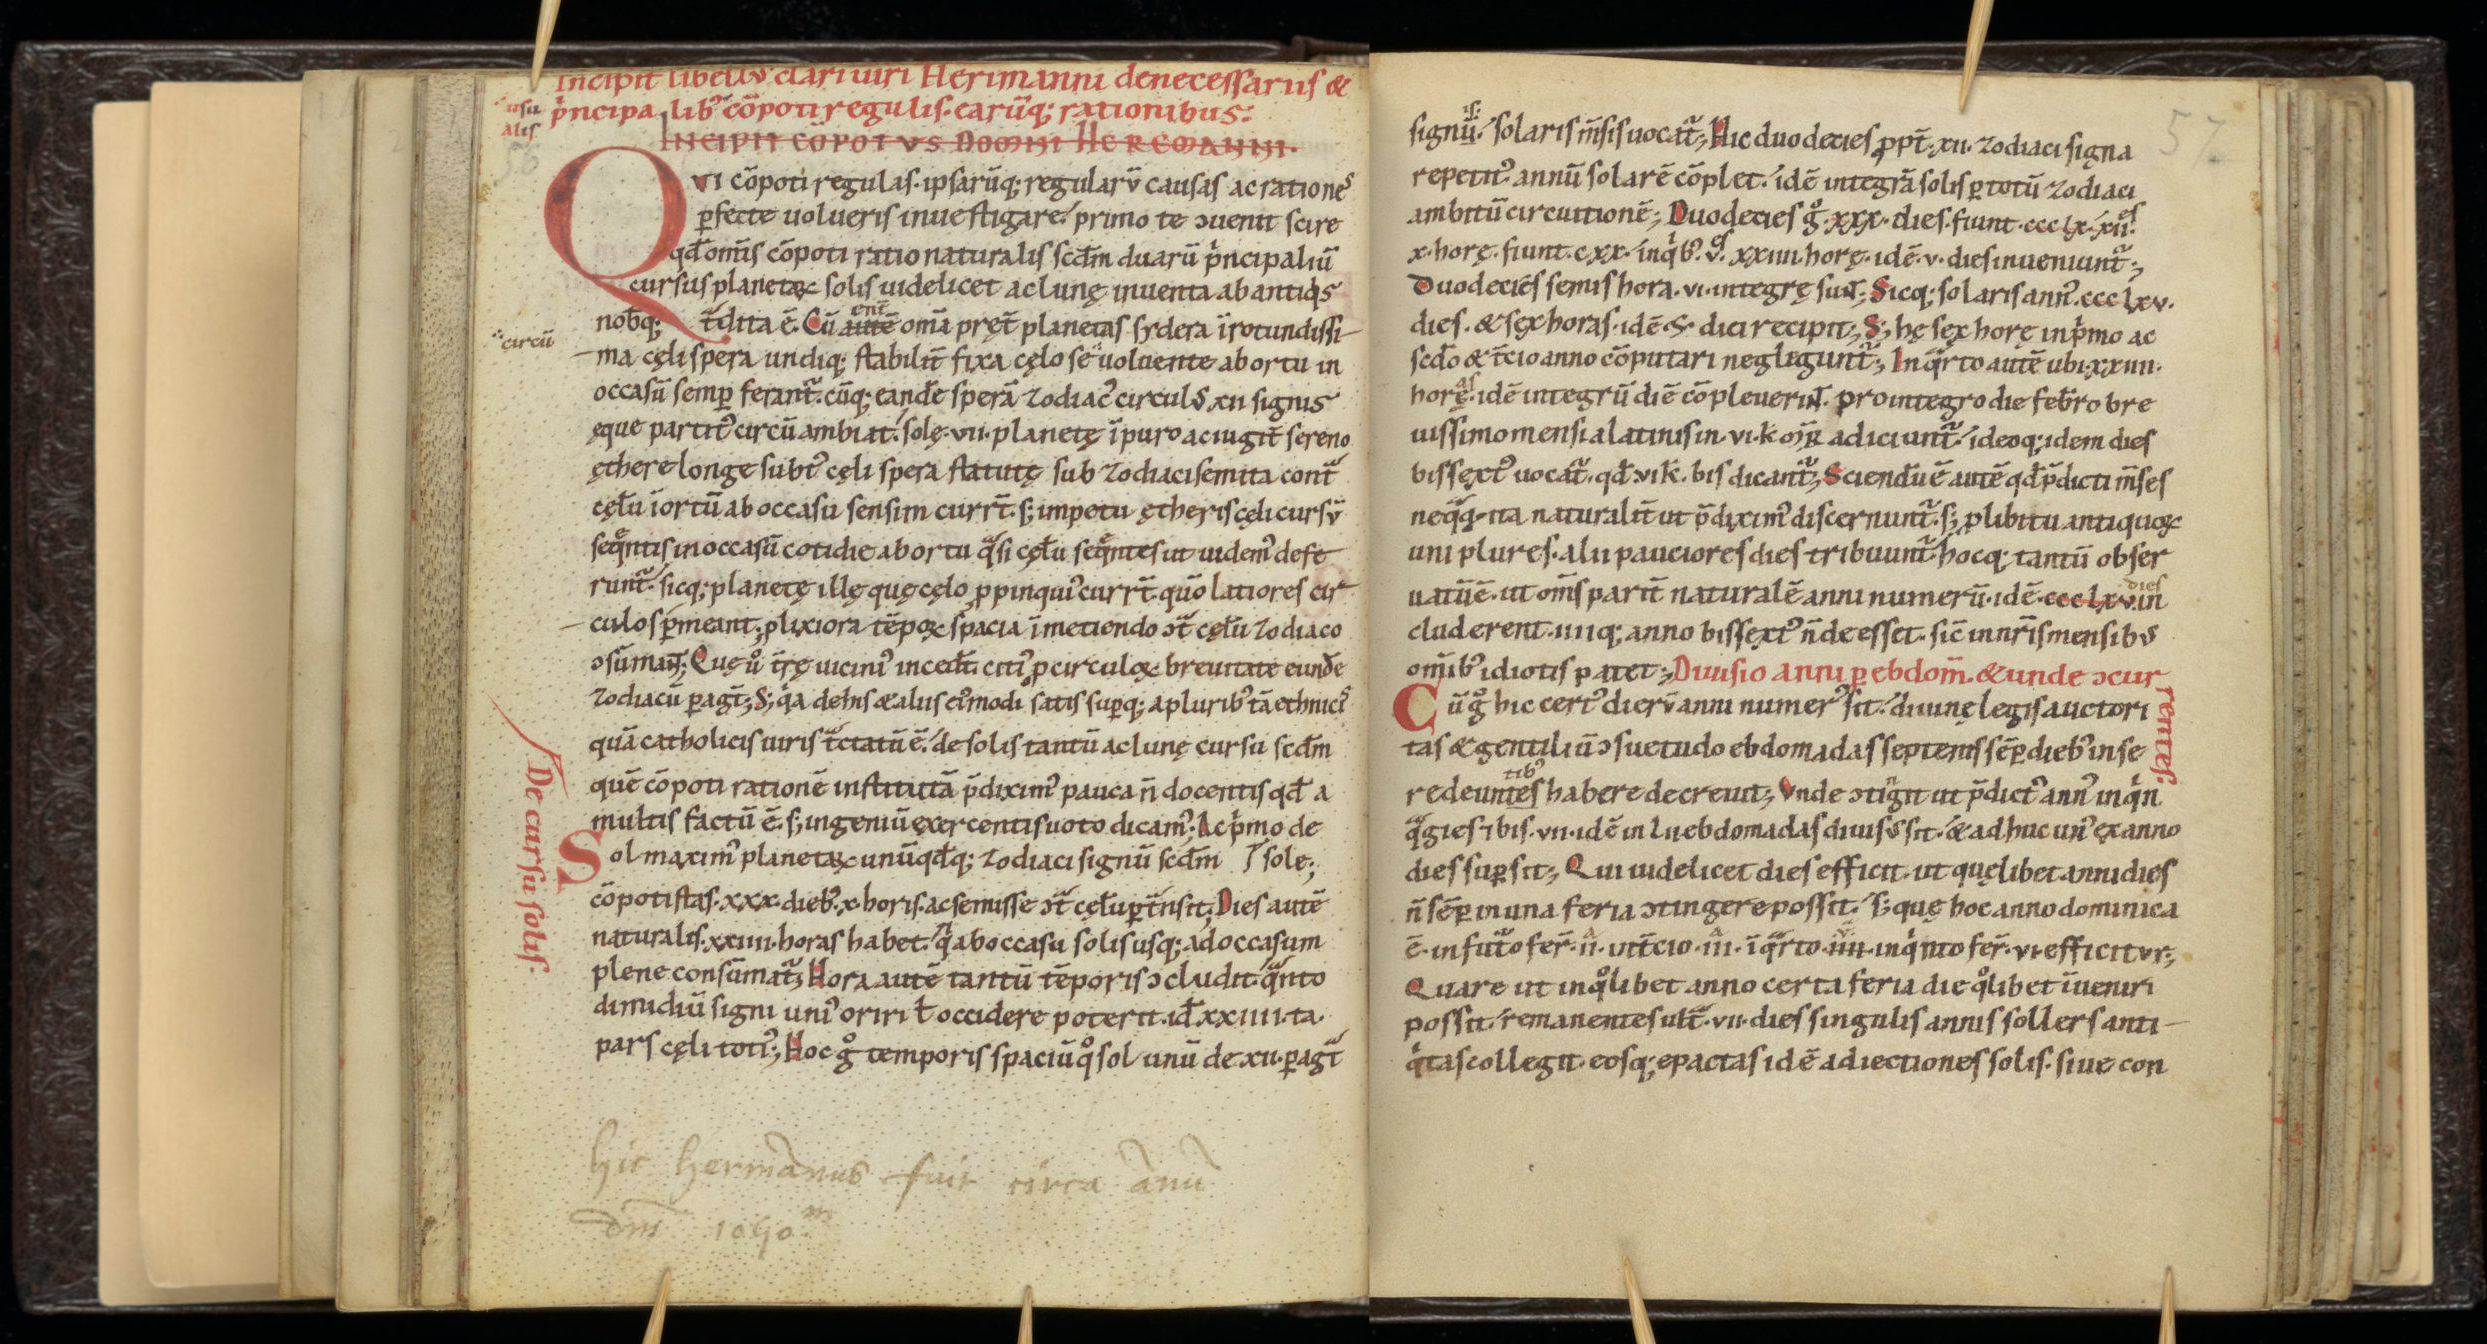 Incipit libell᷒ clari uiri Herimanni denecessariis &
p̍ncipa lib᷒ cōpoti regulis. earūq; rationibus:
usu
alis
Incipit cōpotvs domni Heremanni.
56
QVI cōpoti regulas. ipsarūq; regularū causas ac rationes
ꝑfecte uolueris inuestigare. primo te ↄuenit scire
qđ om̄is cōpoti ratio naturalis scđm duarū p̍ncipaliū
cursus planetaꝝ solis uidelicet ac lunę inuenta ab antiq̍s
nob̄q; t̄dita ē. Cū autē om̄a pręt̄ planetas sydera ī rotundissi
ent̄
circū
ma cęli spera undiq; stabilit̄ fixa cęlo se uoluente ab ortu in
occasū semꝑ ferant̄. cūq; eand̄e sperā zodiac᷒ circulus xii signis
ęque partit᷒ circū ambiat. solę .vii. planetę ī puro ac iugit̄ sereno
ęthere longe subt᷒ cęli spera statutę sub zodiaci semita cont̄
cęlū ī ortū ab occasu sensim currt̄. s; impetu ętheris cęli cursū
seq̄ntis in occasū cotidie ab ortu q̄si cęlū seq̄ntes ut uidem᷒ defe
runt̄. sicq; planetę illę quę cęlo ꝓpinqui᷒ currt̄ quo latiores cir
culos ꝑmeant. ꝓlixiora tēpoꝝ spacia ī metiendo ↄt̄ cęlū zodiaco
ↄsūmant; Quę ů t̄rę uicini᷒ incedt̄. citi᷒ ꝑ circuloꝝ breuitate eund̄e
zodiacū ꝑagt̄; S; q̍a de his & aliis ei᷒modi satis suꝑq; a plurib᷒ tā ethnicis
quā catholicis uiris t̄ctatū ē. de solis tantū ac lunę cursu scđm
quē cōpoti rationē institutā p̄dixim᷒ pauca n̄ docentis qđ a
multis factū ē. s; ingeniū exercentis uoto dicam᷒; Ac p̍mo de
sole;
De cursu solis.
Sol maxim᷒ planetaꝝ unūqđq; zodiaci signū scđm
cōpotistas .xxx. dieb᷒ .x. horis. ac semisse ↄt̄ cęlū ꝑt̄nsit; Dies autē
naturalis .xxiiii. horas habet. q̄ ab occasu solis usq; ad occasum
plene consūmat̄; Hora autē tantū tēporis ↄcludit. q̄nto
dimidiū signi uni᷒ oriri ł occidere poterit. id̄ .xxiiii.ta.
pars cęli toti᷒; Hoc g̊ temporis spaciū q̊ sol unū de .xii. ꝑagt̄
hic hermanus fuit circa ānū
dm̄ 1050.m
57
signū. solaris m̄sis uocat̄; Hic duodecies ꝓpt̄ .xii. zodiaci signa
is:
repetit᷒ annū solarē cōplet. idē integrā solis ꝑ totū zodiaci
ambitū circuitionē; Duodecies g̊ .xxx. dies. fiunt .ccclx. xii.
es
x. horę. fiunt .cxx. in q̍b᷒ .v. xxiiii horę. idē .v. dies inueniunt̄;
Duodecies semis hora .vi. integrę sunt; Sicq; solaris ann᷒ .ccclxv.
dies. & sex horas. idē .S. dici recipit; S; hę sex horę in p̍mo ac
scđo & t̄cio anno cōputari neglegunt̄; In q̄rto autē ubi .xxiiii.
horę. idē integrū diē cōpleuerint. pro integro die feb̄ro bre
as
uissimo mensi a latinis in .vi. k᷒ mr̄ adiciunt̄. ideoq; idem dies
bissext᷒ uocat̄. qđ .vi k. bis dicant̄; Sciendū ē autē qđ p̄dicti m̄ses
neq̄q̄ ita naturalit̄ ut p̄dixim᷒ discernunt̄. s; ꝓ libitu antiquoꝝ
uni plures. alii pauciores dies tribuunt̄. hocq; tantū obser
uatū ē. ut om̄s parit̄ naturalē anni numerū. idē .ccclxv. in
dies
cluderent. iiiiq; anno bissext᷒ n̄ deesset. sic̄ in nr̄is mensib᷒
om̄ib᷒ idiotis patet; Diuisio anni ꝑ ebdom̄. & unde ↄcur
rentes:
Cū g̊ hic cert᷒ dierū anni numer᷒ sit. diuinę legis auctori
tas & gentiliū ↄsuetudo ebdomadas septenis sēꝑ dieb᷒ in se
redeuntes habere decreuit; Vnde ↄtign̄t ut p̄dict᷒ ann᷒ in q̍n
tib᷒
q̄gies & bis .vii. idē in lii ebdomadas diuisus sit. & adhuc un᷒ ex anno
dies suꝑsit; Qui uidelicet dies efficit. ut quęlibet anni dies
n̄ sēꝑ in una feria ↄtingere possit. s; quę hoc anno dominica
ē. in futō fer̄ .ii. in t̄cio .iii. ī q̄rto .iiii. in q̍nto fer̄ .vi. efficitvr;
Quare ut in q̊libet anno certa feria die q̊libet īueniri
possit. remanentes ult̄ .vii. dies singulis annis sollers anti
q̍tas collegit. eosq; epactas idē adiectiones solis. siue con